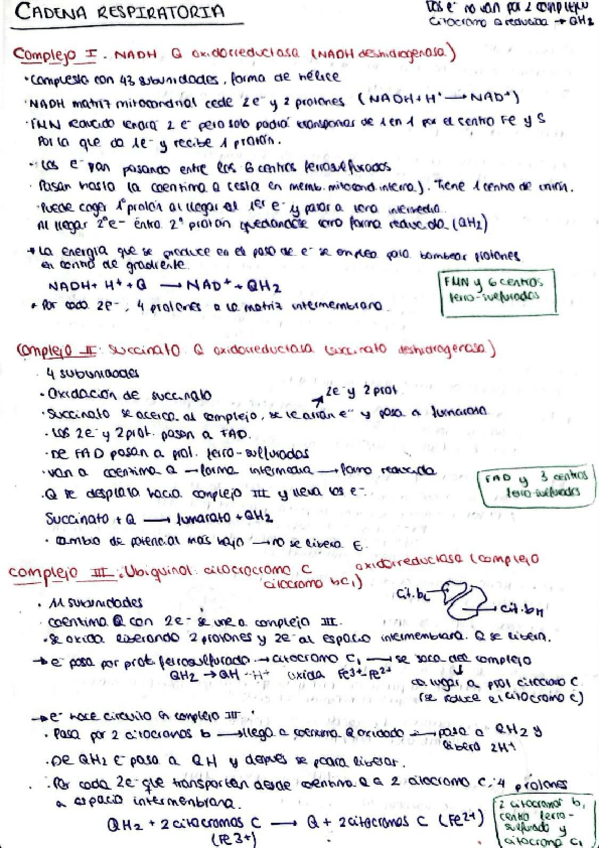 CADENA RESPIRATORIA
Los e⁻ no van por 2 complejo
citocromo a reducida → QH2
Complejo I. NADH, Q oxidorreductasa (NADH deshidrogenasa)
· Compuesto con 43 subunidades, forma de hélice
· NADH matriz mitocondrial cede 2e⁻ y 2 protones (NADH+H⁺ → NAD⁺)
· FMN reducido tendrá 2 e⁻ pero solo podrá transportar de 1 en 1 por el centro Fe y S
Por lo que da 1e⁻ y recibe 1 protón.
· Los e⁻ van pasando entre los 6 centros ferrosulfurados
· Pasan hasta la coentima Q (esta en memb. mitocond. interna). Tiene 1 centro de unión.
· Puede coger 1º protón al llegar el 1er e⁻ y pasar a forma intermedia
Al llegar 2º e⁻ entra 2º protón quedandose como forma reducida (QH2)
→ La energía que se produce en el paso de e⁻ se emplea para bombear protones
en contra de gradiente.
NADH + H⁺ + Q → NAD⁺ + QH2
· Por cada 2e⁻, 4 protones a la matriz intermembrana.
FMN y 6 centros
ferro-sulfurados
Complejo II: Succinato Q oxidorreductasa (succinato deshidrogenasa)
4 subunidades
· Oxidación de succinato
2e⁻ y 2 prot.
· Succinato se acerca al complejo, se le e⁻ y pasa a fumarato
· Los 2e⁻ y 2 prot. pasan a FAD.
· De FAD pasan a prot. ferro-sulfurados
· Van a coentima Q → forma intermedia → forma reducida
· Q se desplaza hacia complejo III y lleva los e⁻.
Succinato + Q → fumarato + QH2
· Cambio de potencial mas bajo → no se libera E.
FAD y 3 centros
ferro-sulfurados
Complejo III: Ubiquinol: citocrocromo C oxidorreductasa (complejo
citocromo bc1)
· 11 subunidades
cit.bL
cit.bH
· Coentima Q con 2e⁻ se une a complejo III.
· Se oxida liberando 2 protones y 2e⁻ al espacio intermembrana. Q se libera.
→ e⁻ pasa por prot. ferrosulfurada → citocromo C1 → se saca del complejo
QH2 → QH + H⁺ oxida Fe3+ Fe2+
da lugar a prot citocromo C.
(se reduce el citocromo c)
→ e⁻ hace circuito en complejo III
· Pasa por 2 citocromos b → llega a coentima Q oxidado → pasa a QH2 y
libera 2H⁺
· De QH2 e⁻ pasa a QH y después se podra liberar.
· Por cada 2e⁻ que transportan desde coentima Q a 2 citocromo c, 4 protones
a espacio intermembrana.
QH2 + 2 citocromos C → Q + 2 citocromos C (Fe2+)
(Fe3+)
2 citocromos b,
centro ferro-
sulfurado y
citocromo C1